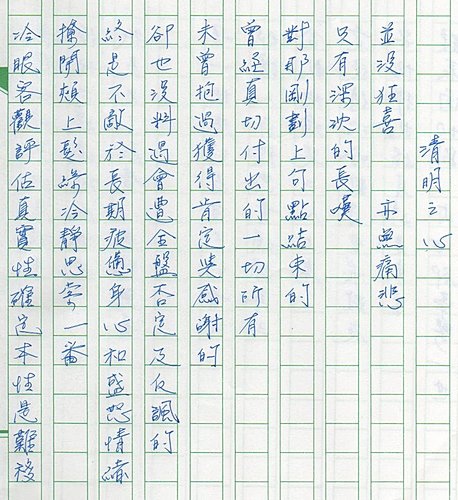 清明之心
並沒狂喜 亦無痛悲
只有深沈的長嘆
對那剛劃上句點結束的
曾經真切付出的一切所有
未曾抱過獲得肯定與感謝的
卻也沒料過會遭全盤否定及反諷的
終是不敵於長期疲憊身心和盛怒情緒
撩開頰上髮綹冷靜思索一番
冷眼客觀評估真實性確定本性是難移